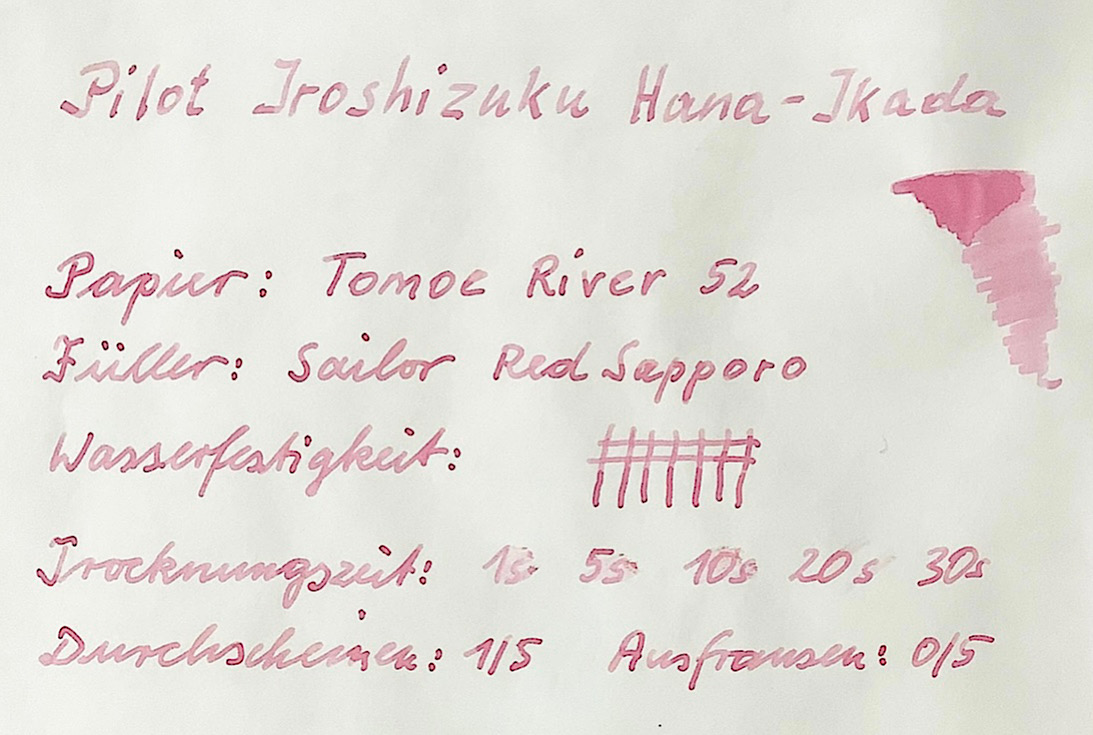 Pilot Iroshizuku Hana-Ikada
Papier: Tomoe River 52
Füller: Sailor Red Sapporo
Wasserfestigkeit:
Trocknungszeit: 1s 5s 10s 20s 30s
Durchscheinen: 1/5 Ausfransen: 0/5